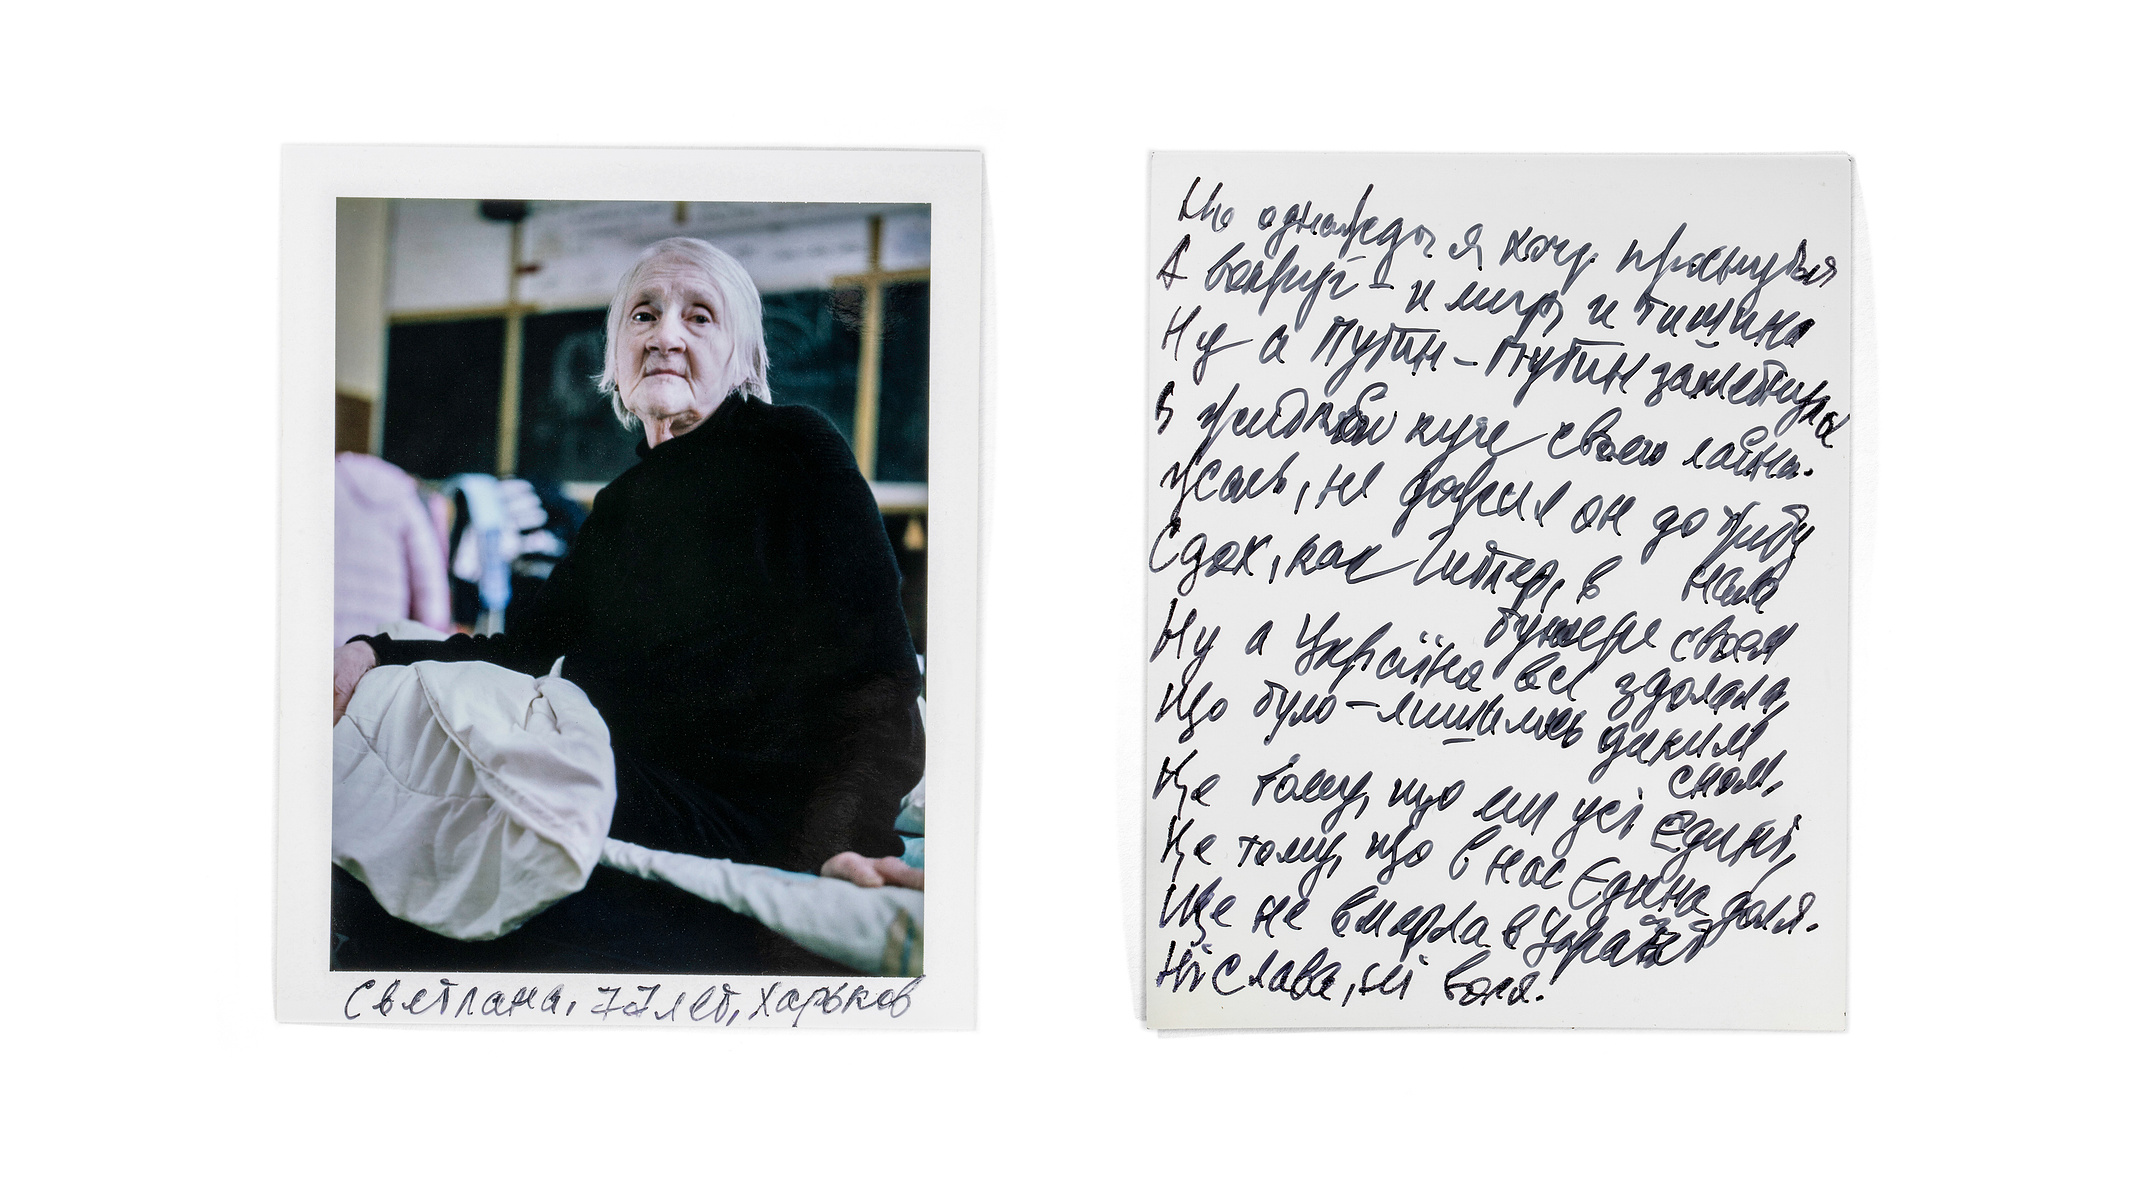 Светлана, 77 лет, Харьков
Но однажды я хочу проснуться
А вокруг – и мир, и тишина
Ну а Путин – Путин
В кучe своего лайна.
Жаль, не дожил он до
Сдох, как Гитлер, в
бункере своем
Ну а Україна все здолала,
Що було – лишилось диким
сном,
Це тому, що ми усі Єдині,
Це тому, що в нас Єдина доля.
Ще не вмерла в Україні
Ні слава, ні воля!